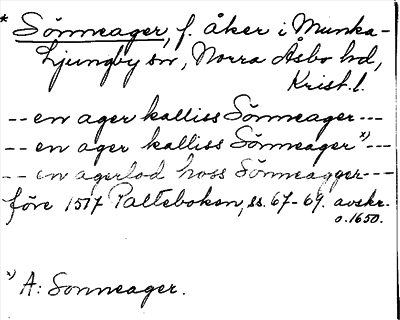 * Sönneager, f. åker i Munka-
Ljungby sn, Norra Åsbo hd,
Krist. l.
-- en ager kalliss Sönneager ---
-- en ager kalliss Sönneager x) ---
-- en agerlod hoss Sönneagger ---
före 1517 Palteboken, ss. 67-69. avskr.
o. 1650.
x) A: Sonneager.